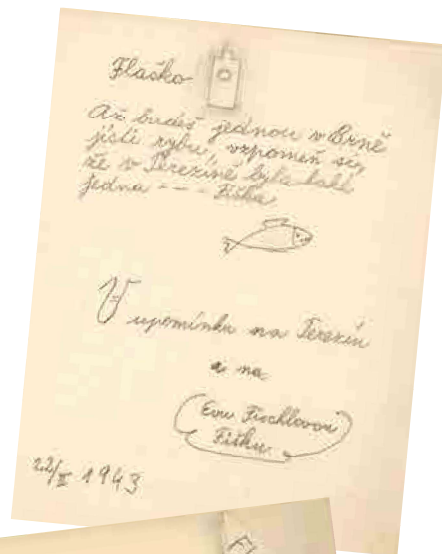 Flaško
Až budeš jednou v Brně
jísti rybu, vzpomeň si,
že v Terezíně byla také
jedna - - - Fiška
V upomínku na Terezín
a na
Evu Fischlovou
Fišku.
22/II 1943